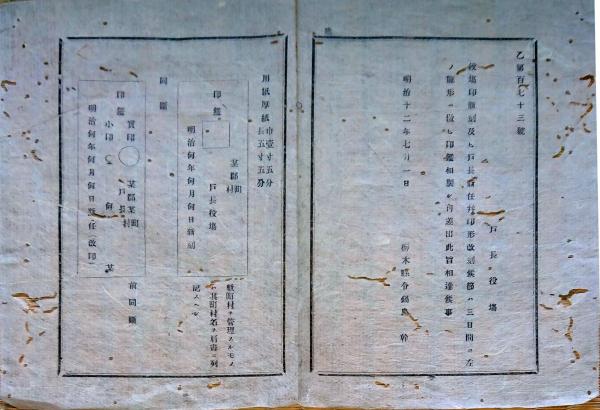 乙第百七十三號
戸長役場
役場印新刻及ヒ戸長新任并印形改刻候節ハ三日間ニ左
ノ雛形ニ倣ヒ印鑑相製シ可差出此旨相達候事
明治十二年七月一日
栃木縣令鍋島幹
用紙厚紙 巾壹寸五分 長五寸五分
印鑑
某郡 町村
戸長役場
明治何年何月何日新刻
同斷
實印
某郡某町村
戸長
何某
小印
印鑑
明治何年何月何日新任(改印)
前同斷
數町村ヲ管理スルモノ
ハ其町村名ヲ肩書ニ列
記スヘシ